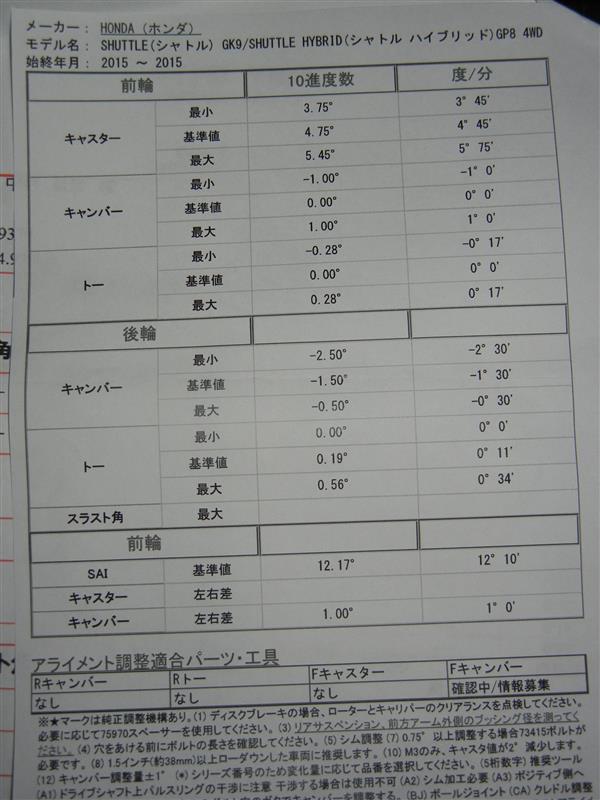 メーカー: HONDA (ホンダ)
モデル名: SHUTTLE(シャトル) GK9/SHUTTLE HYBRID(シャトル ハイブリッド)GP8 4WD
始終年月: 2015 ～ 2015
前輪 10進度数 度/分
キャスター 最小 3.75° 3° 45'
基準値 4.75° 4° 45'
最大 5.45° 5° 75'
キャンバー 最小 -1.00° -1° 0'
基準値 0.00° 0° 0'
最大 1.00° 1° 0'
トー 最小 -0.28° -0° 17'
基準値 0.00° 0° 0'
最大 0.28° 0° 17'
後輪
キャンバー 最小 -2.50° -2° 30'
基準値 -1.50° -1° 30'
最大 -0.50° -0° 30'
トー 最小 0.00° 0° 0'
基準値 0.19° 0° 11'
最大 0.56° 0° 34'
スラスト角 最大
前輪
SAI 基準値 12.17° 12° 10'
キャスター 左右差
キャンバー 左右差 1.00° 1° 0'
アライメント調整適合パーツ・工具
Rキャンバー Rトー Fキャスター Fキャンバー
なし なし なし 確認中/情報募集
※★マークは純正調整機構あり。(1) ディスクブレーキの場合、ローターとキャリパーのクリアランスを点検してください。
必要に応じて75970スペーサーを使用してください。(3) リアサスペンション、前方アーム外側のブッシング径を測ってく
ださい。(4) 穴をあける前にボルトの長さを確認してください。(5) シム調整 (7) 0.75° 以上調整する場合73415ボルトが
必要です。(8) 1.5インチ(約38mm)以上ローダウンした車両に推奨します。(10) M3のみ、キャスタ値が2° 減少します。
(12) キャンバー調整量±1° (*) シリーズ番号のため変化量に応じて品番を選択してください。(5桁数字) 推奨ツール
(A1) ドライブシャフト上バルスリングの干渉に注意 干渉する場合は使用不可 (A2) シム加工必要 (A3) ポジティブ側へ
(BJ) ボールジョイント (CA) クレドル調整